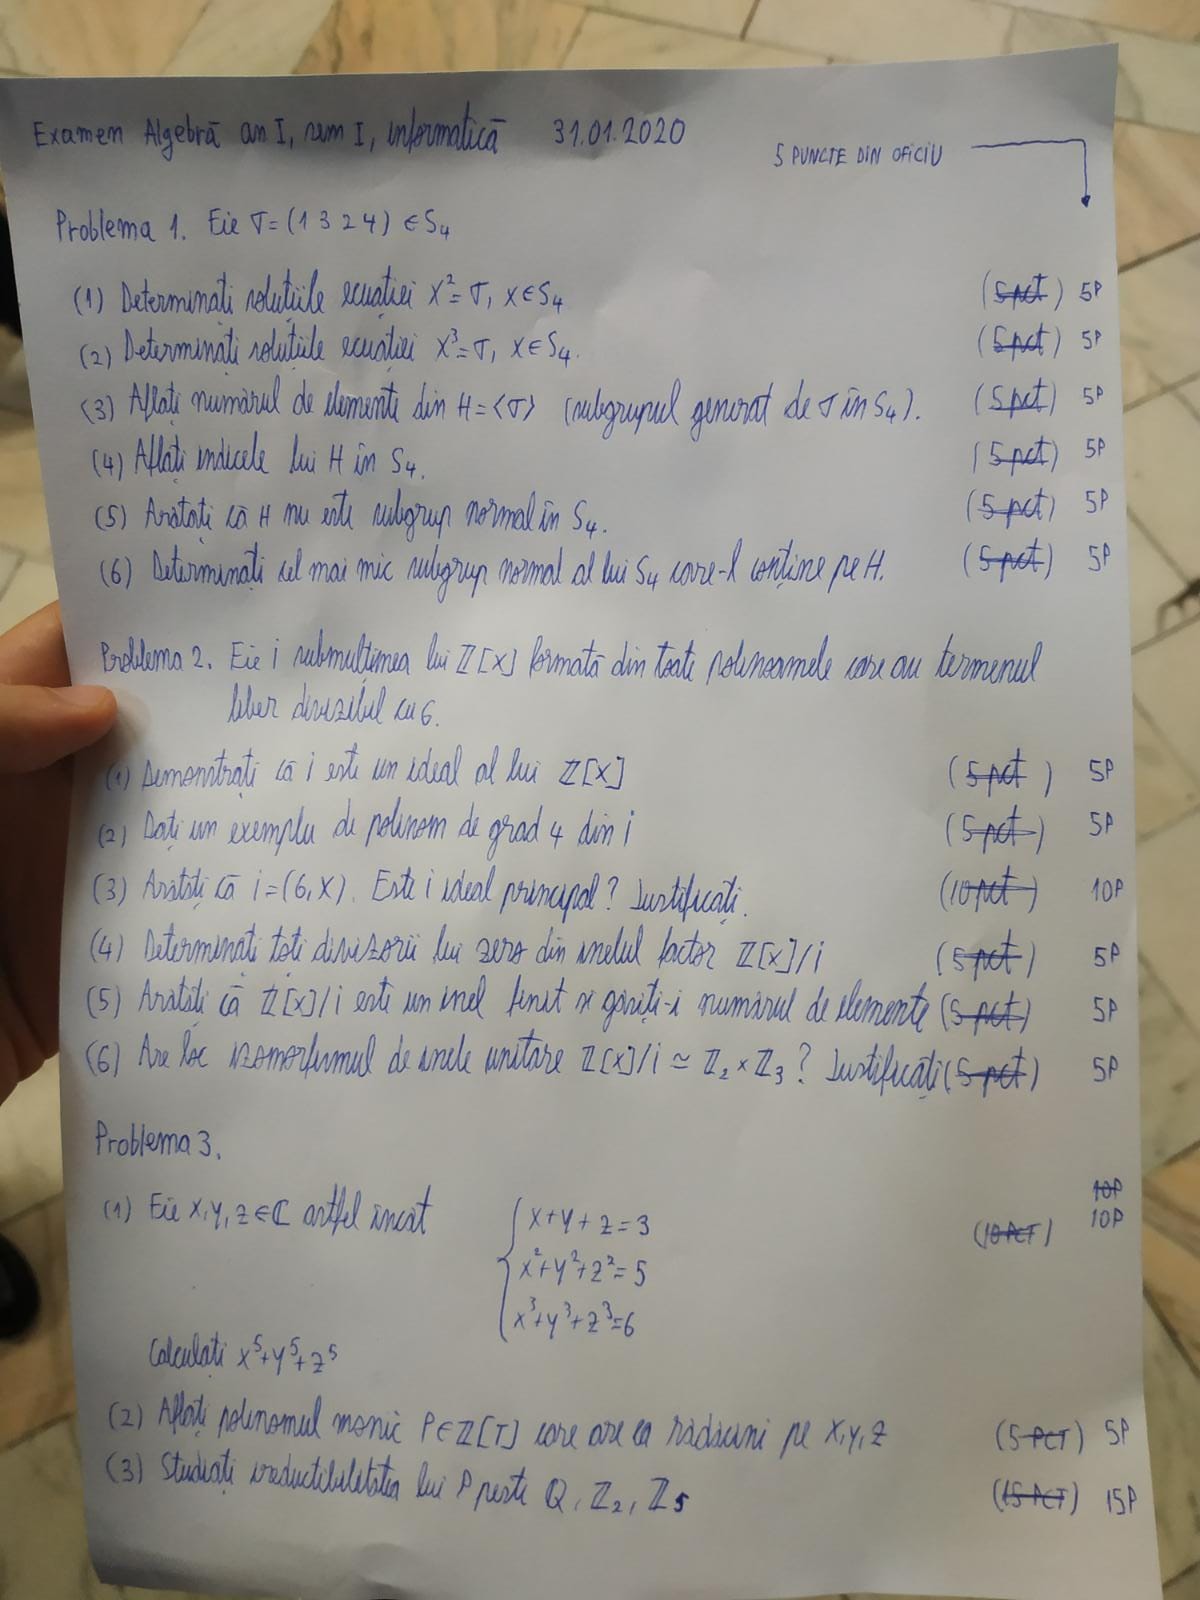 Examen Algebră an I, sem I, informatică 31.01.2020
5 PUNCTE DIN OFICIU
Problema 1. Fie σ=(1 3 2 4) ∈ S₄
(1) Determinați soluțiile ecuației x²=σ, x∈S₄ (5 pct) 5P
(2) Determinați soluțiile ecuației x³=σ, x∈S₄. (5 pct) 5P
(3) Aflați numărul de elemente din H=<σ> (subgrupul generat de σ în S₄). (5 pct) 5P
(4) Aflați indicele lui H în S₄. (5 pct) 5P
(5) Arătați că H nu este subgrup normal în S₄. (5 pct) 5P
(6) Determinați cel mai mic subgrup normal al lui S₄ care-l conține pe H. (5 pct) 5P
Problema 2. Fie i submulțimea lui ℤ[X] formată din toate polinoamele care au termenul
liber divizibil cu 6.
(1) Demonstrați că i este un ideal al lui ℤ[X] (5 pct) 5P
(2) Dați un exemplu de polinom de grad 4 din i (5 pct) 5P
(3) Arătați că i=(6,X). Este i ideal principal? Justificați. (10 pct) 10P
(4) Determinați toți divizorii lui zero din inelul factor ℤ[X]/i (5 pct) 5P
(5) Arătați că ℤ[X]/i este un inel finit și găsiți-i numărul de elemente (5 pct) 5P
(6) Are loc izomorfismul de inele unitare ℤ[X]/i ≃ ℤ₂×ℤ₃? Justificați (5 pct) 5P
Problema 3.
10P
(1) Fie x,y,z∈ℂ astfel încât { x+y+z=3 (10 PCT) 10P
x²+y²+z²=5
x³+y³+z³=6
Calculați x⁵+y⁵+z⁵
(2) Aflați polinomul monic P∈ℤ[T] care are ca rădăcini pe x,y,z (5 PCT) 5P
(3) Studiați ireductibilitatea lui P peste Q, ℤ₂, ℤ₅ (15 PCT) 15P